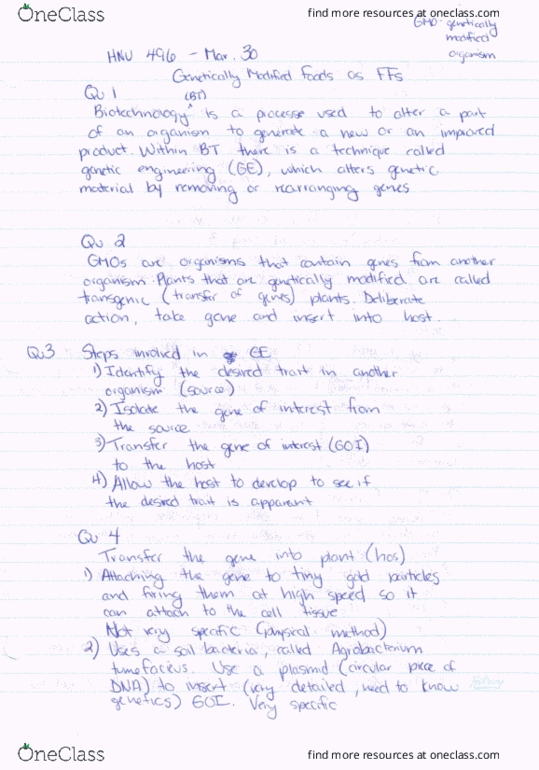 OneClass
find more resources at oneclass.com
GMO - genetically
modified
organism
HNU 496 - Mar. 30
Genetically Modified Foods as FFs
Qu 1
(BT)
Biotechnology ^ is a processe used to alter a part
of an organism to generate a new or an improved
product. Within BT there is a technique called
genetic engineering (GE), which alters genetic
material by removing or rearranging genes
Qu 2
GMOs are organisms that contain genes from another
organism. Plants that are genetically modified are called
transgenic (transfer of genes) plants. Deliberate
action, take gene and insert into host.
Qu 3 Steps involved in GE
1) Identify the desired trait in another
organism (source)
2) Isolate the gene of interest from
the source
3) Transfer the gene of interest (GOI)
to the host
4) Allow the host to develop to see if
the desired trait is apparent
Qu 4
Transfer the gene into plant (hos)
1) Attaching the gene to tiny gold particles
and firing them at high speed so it
can attach to the cell tissue
Not very specific (physical method)
2) Uses a soil bacteria, called Agrobacterium
tumefacieus. Use a plasmid (circular piece of
DNA) to insert (very detailed, need to know
genetics) GOI. Very specific
OneClass
find more resources at oneclass.com